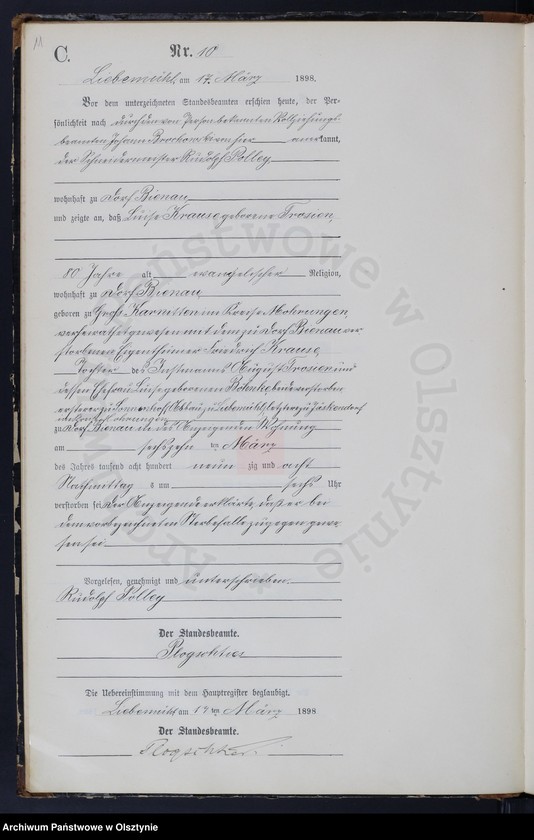 11
C.
Nr. 10
Liebemühl, am 17. März 1898.
Vor dem unterzeichneten Standesbeamten erschien heute, der Per-
sönlichkeit nach durch den von Person bekannten Vollziehungs-
beamten Johann von hier anerkannt,
der Schneidermeister Rudolph Polley
wohnhaft zu Dorf Bienau
und zeigte an, daß Luise Krause geborene Trosien,
80 Jahre alt, evangelischer Religion,
wohnhaft zu Dorf Bienau
geboren zu Groß Karnitten im Kreise Mohrungen,
verheirathet gewesen mit dem zu Dorf Bienau ver-
storbenen Eigenkäthner Friedrich Krause,
Tochter des Instmanns August Trosien und
dessen Ehefrau Luise geborenen beide verstorben
ersterer zu Abbau zu Liebemühl, letztere zu
zu Dorf Bienau in des Anzeigenden Wohnung
am sechszehnten März
des Jahres tausend acht hundert neunzig und acht
Nachmittag s um sechs Uhr
verstorben sei. Der Anzeigende erklärte, daß er bei
dem vorbezeichneten Sterbefalle zugegen gewe-
sen sei.
Vorgelesen, genehmigt und unterschrieben.
Rudolph Polley
Der Standesbeamte.
Die Uebereinstimmung mit dem Hauptregister beglaubigt.
Liebemühl, am 17ten März 1898
Der Standesbeamte.
Archiwum Państwowe w Olsztynie
Archiwum Państwowe w Olsztynie